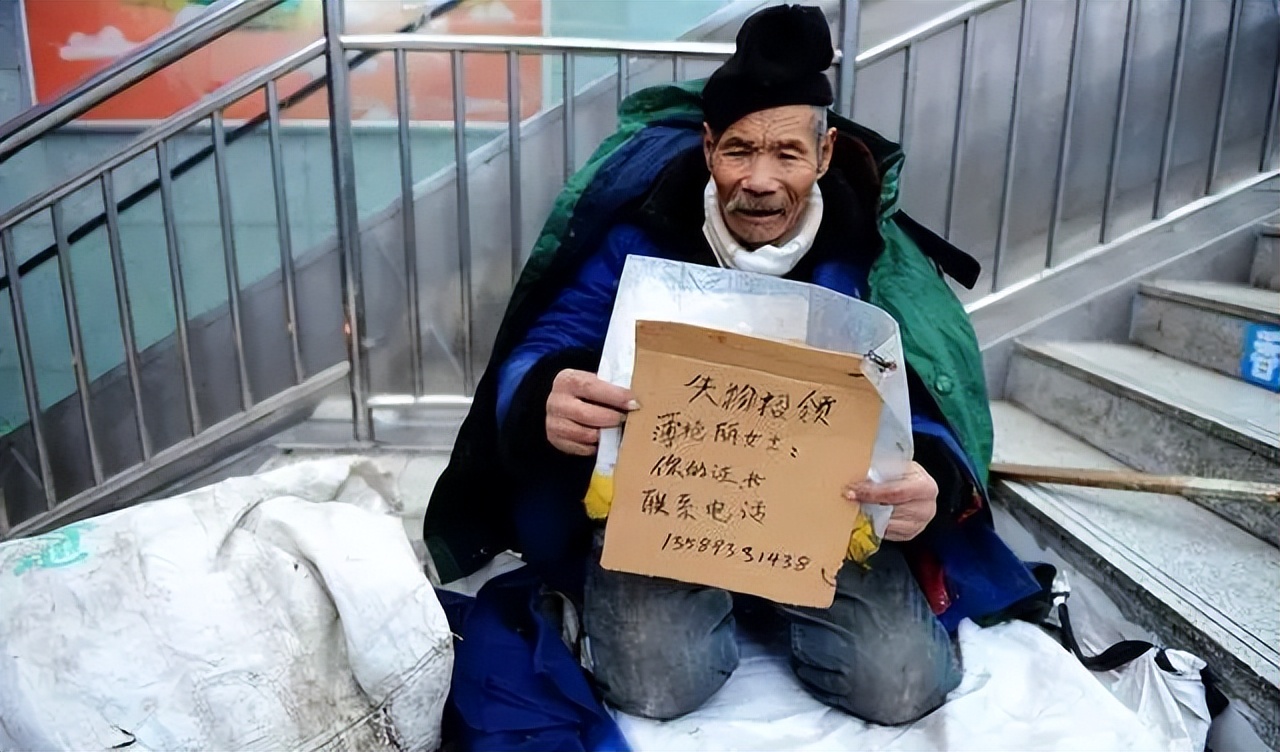 失物招领
薄艳丽女士：
你的证书
联系电话
13589331438